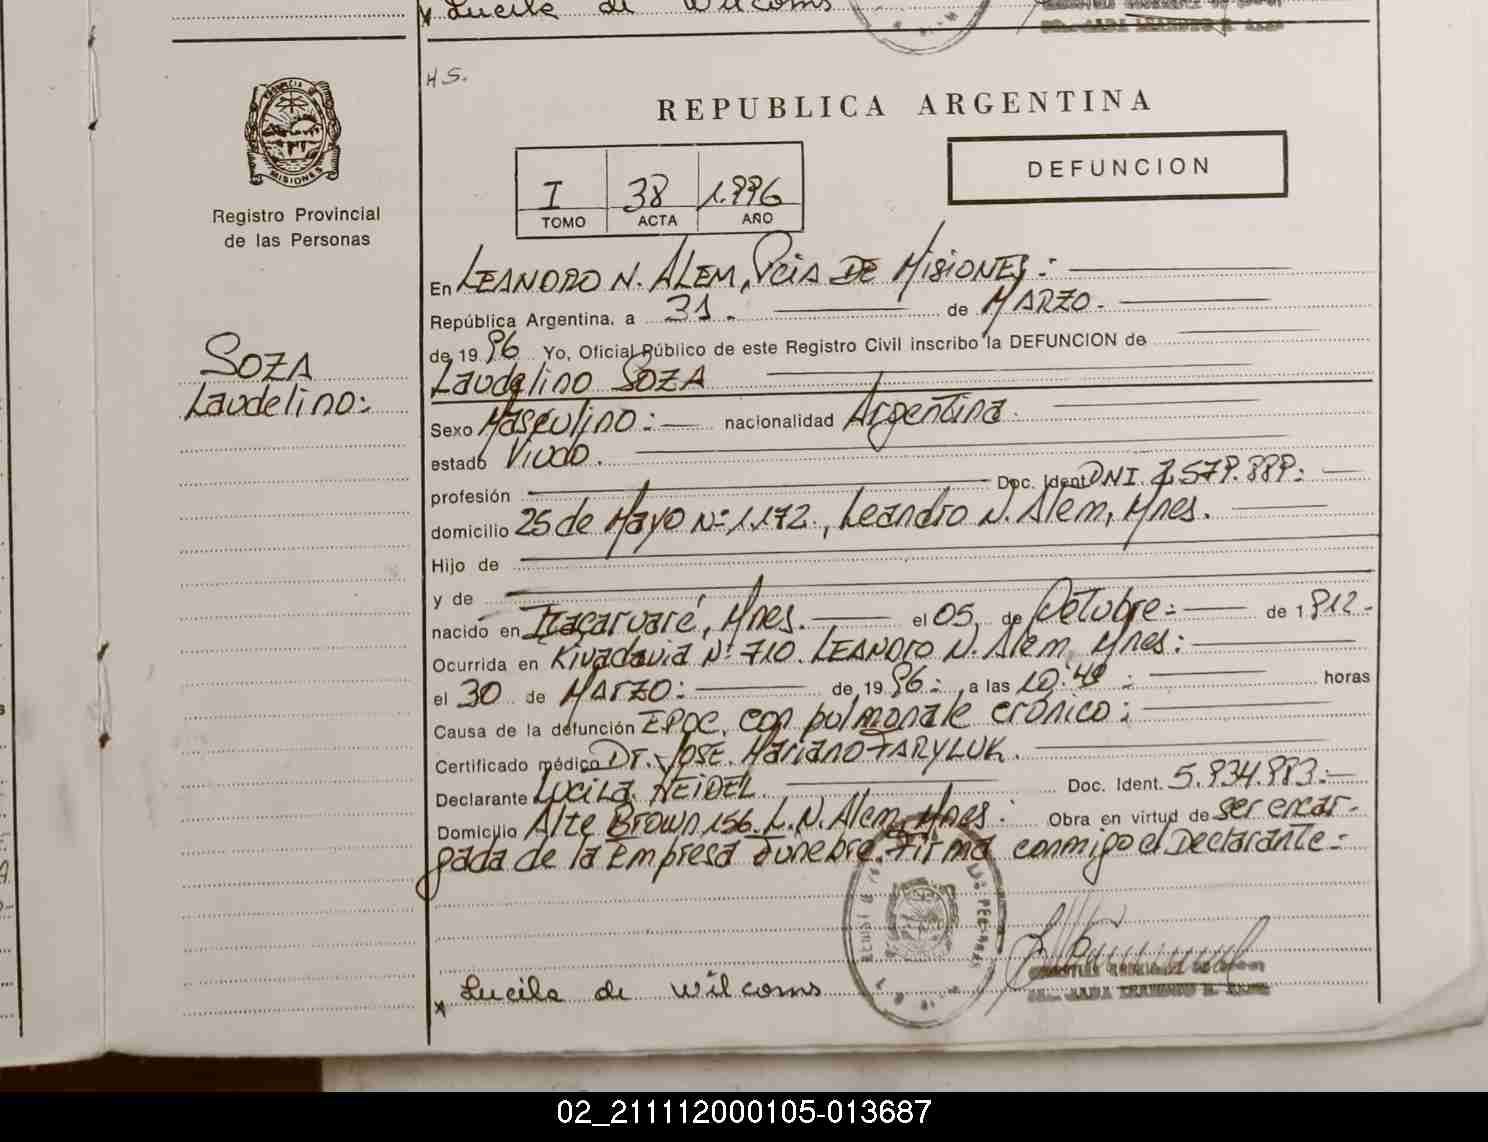 Lucila de Wilcoms
H S.
PROVINCIA DE
MISIONES
Registro Provincial
de las Personas
REPUBLICA ARGENTINA
DEFUNCION
I 38 1.996
TOMO ACTA AÑO
SOZA
Laudelino:
En LEANDRO N. ALEM, Pcia DE MISIONES:
República Argentina, a 31. de MARZO.
de 19 96 Yo, Oficial Público de este Registro Civil inscribo la DEFUNCION de
Laudelino SOZA
Sexo Masculino: nacionalidad Argentina.
estado Viudo.
profesión Doc. Ident DNI 2.579.889:
domicilio 25 de Mayo Nº 1.172., Leandro N. Alem, Mnes.
Hijo de
y de
nacido en Itacaruaré, Mnes. el 05, de Octubre: de 1.912.
Ocurrida en Rivadavia Nº 710. LEANDRO N. Alem, Mnes:
el 30 de MARZO: de 19 96:, a las 10:40: horas
Causa de la defunción EPOC, con pulmonale crónico:
Certificado médico Dr. JOSE Mariano TARYLUK.
Declarante LUCILA NEIDEL. Doc. Ident. 5.934.993:
Domicilio Alte Brown 156. L.N. Alem, Mnes: Obra en virtud de ser encar-
gada de la Empresa Fúnebre. Firma conmigo el Declarante:
x Lucila de Wilcoms
02_211112000105-013687